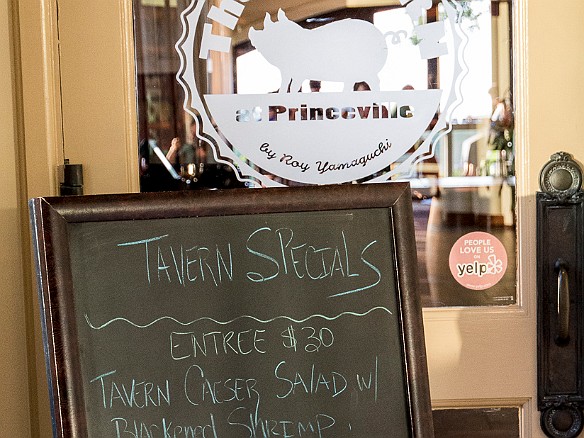 at Princeville
by Roy Yamaguchi
PEOPLE
LOVE US
ON
yelp
TAVERN SPECIALS
ENTREE $30
TAVERN CAESER SALAD W/
Blackened SHRIMP,